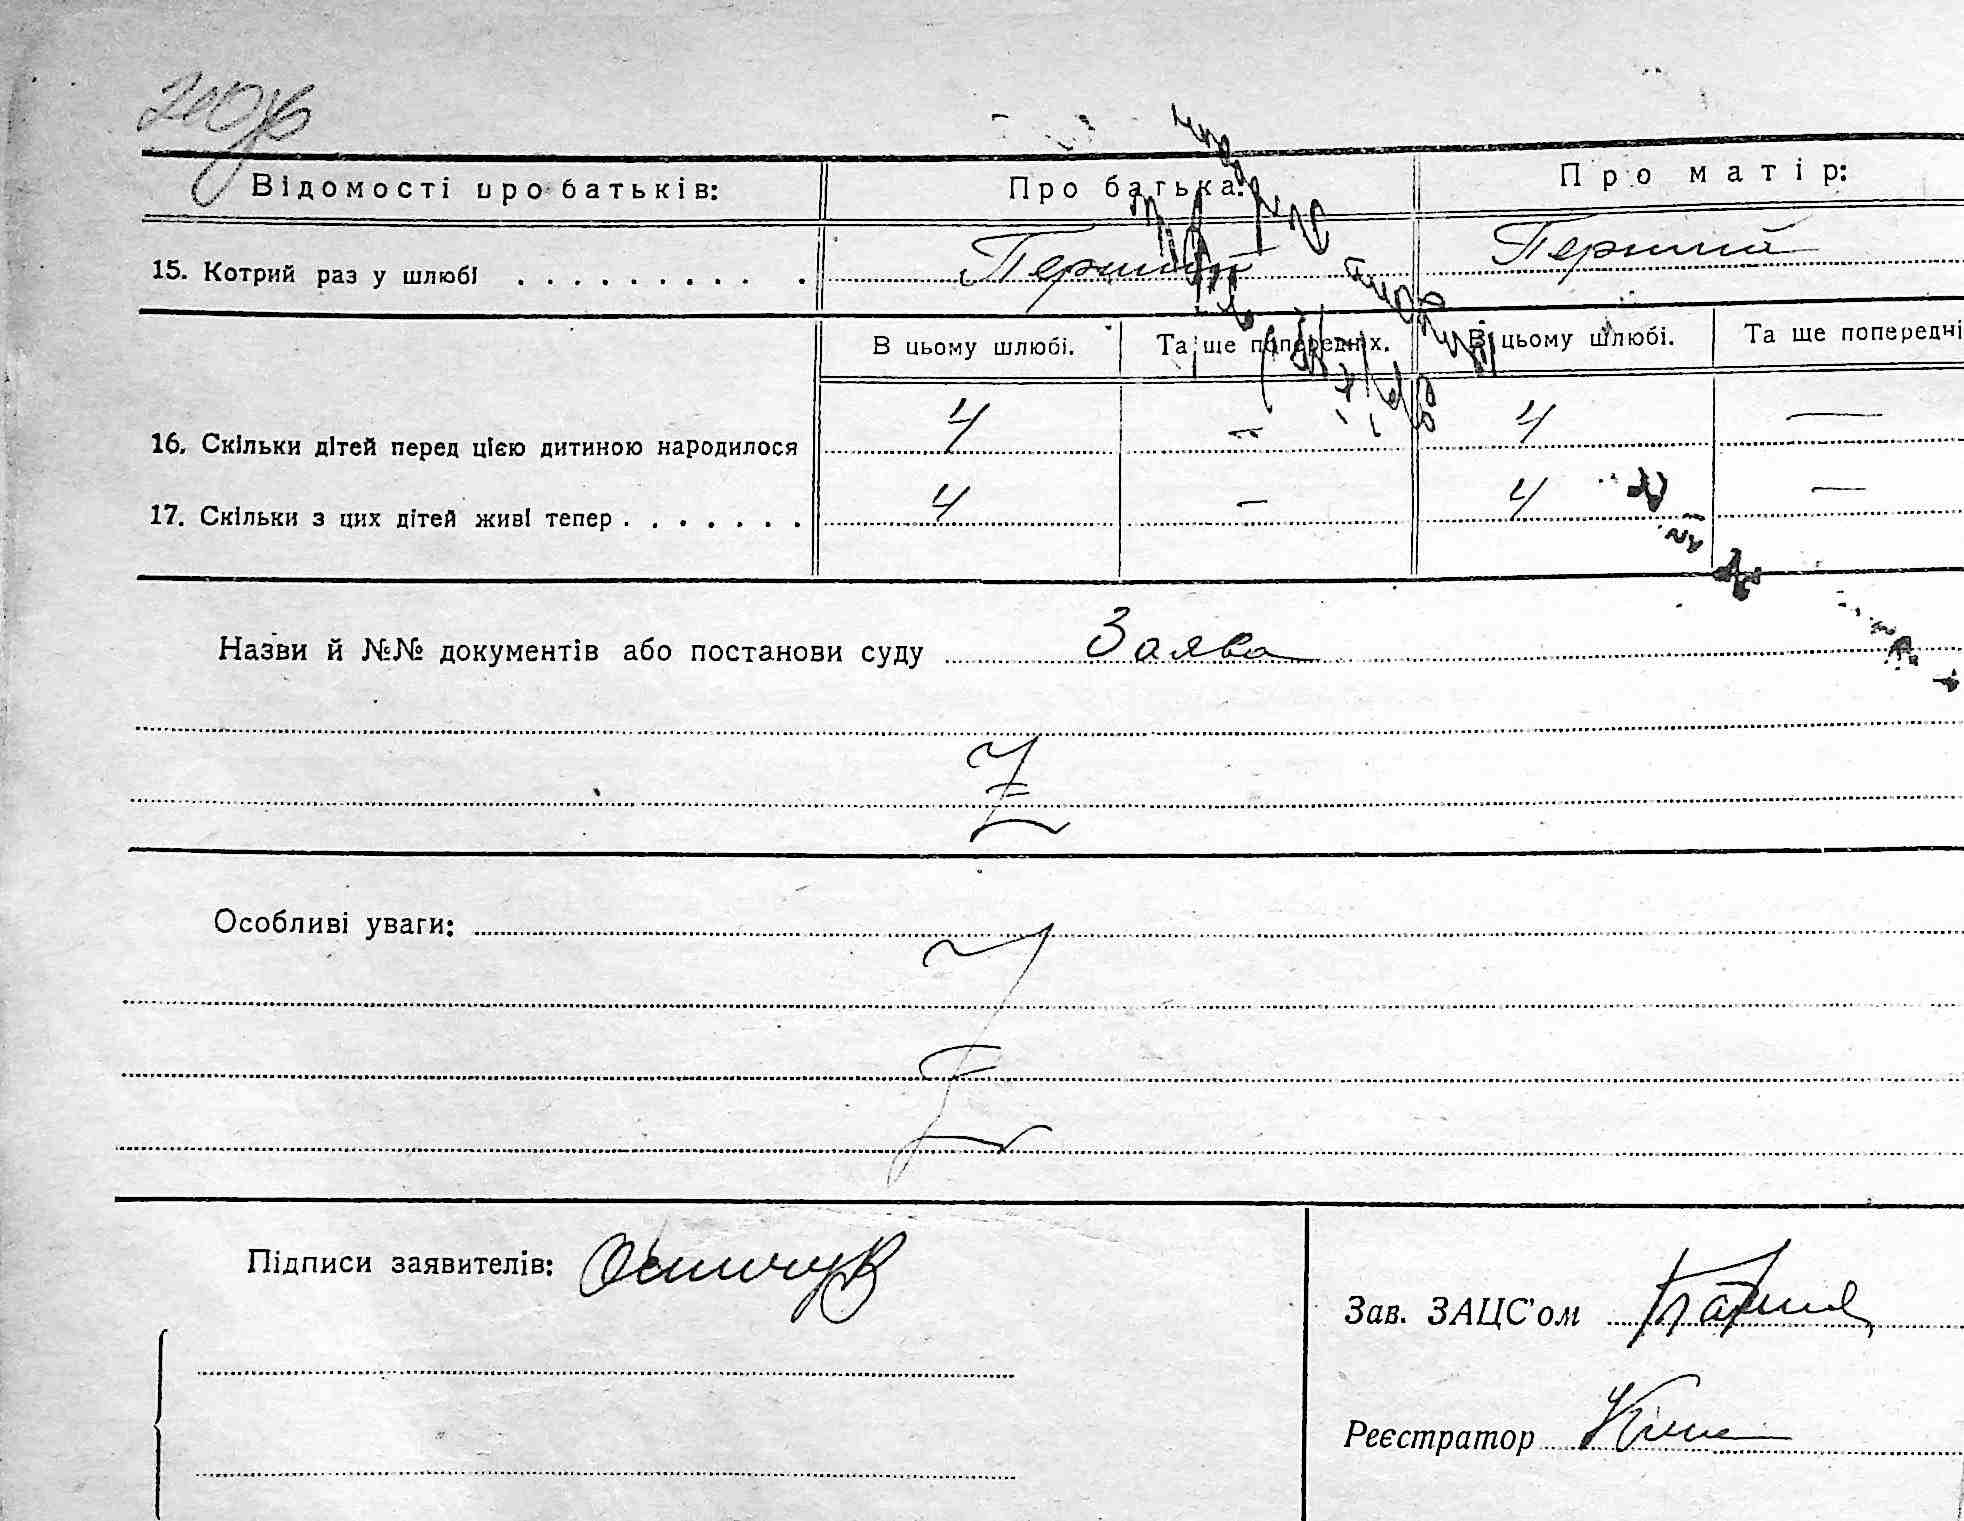 Відомості про батьків: Про батька: Про матір:
15. Котрий раз у шлюбі . . . . . . . . . . Перший Перший
В цьому шлюбі. Та ще попередніх. В цьому шлюбі. Та ще попередні
16. Скільки дітей перед цією дитиною народилося 4 — 4 —
17. Скільки з цих дітей живі тепер . . . . . . . 4 — 4 —
Назви й №№ документів або постанови суду Заява
Особливі уваги:
Підписи заявителів:
Зав. ЗАЦС'ом
Реєстратор